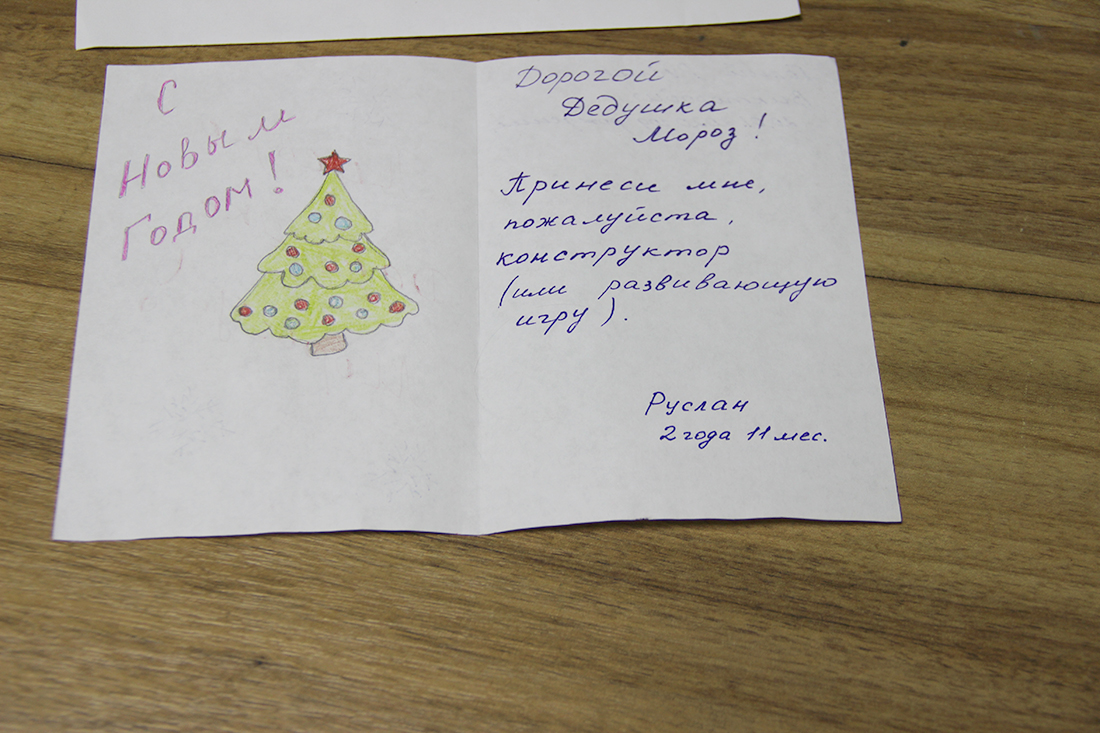 С
Новым
Годом!
Дорогой
Дедушка
Мороз!
Принеси мне,
пожалуйста,
конструктор
(или развивающую
игру).
Руслан
2 года 11 мес.